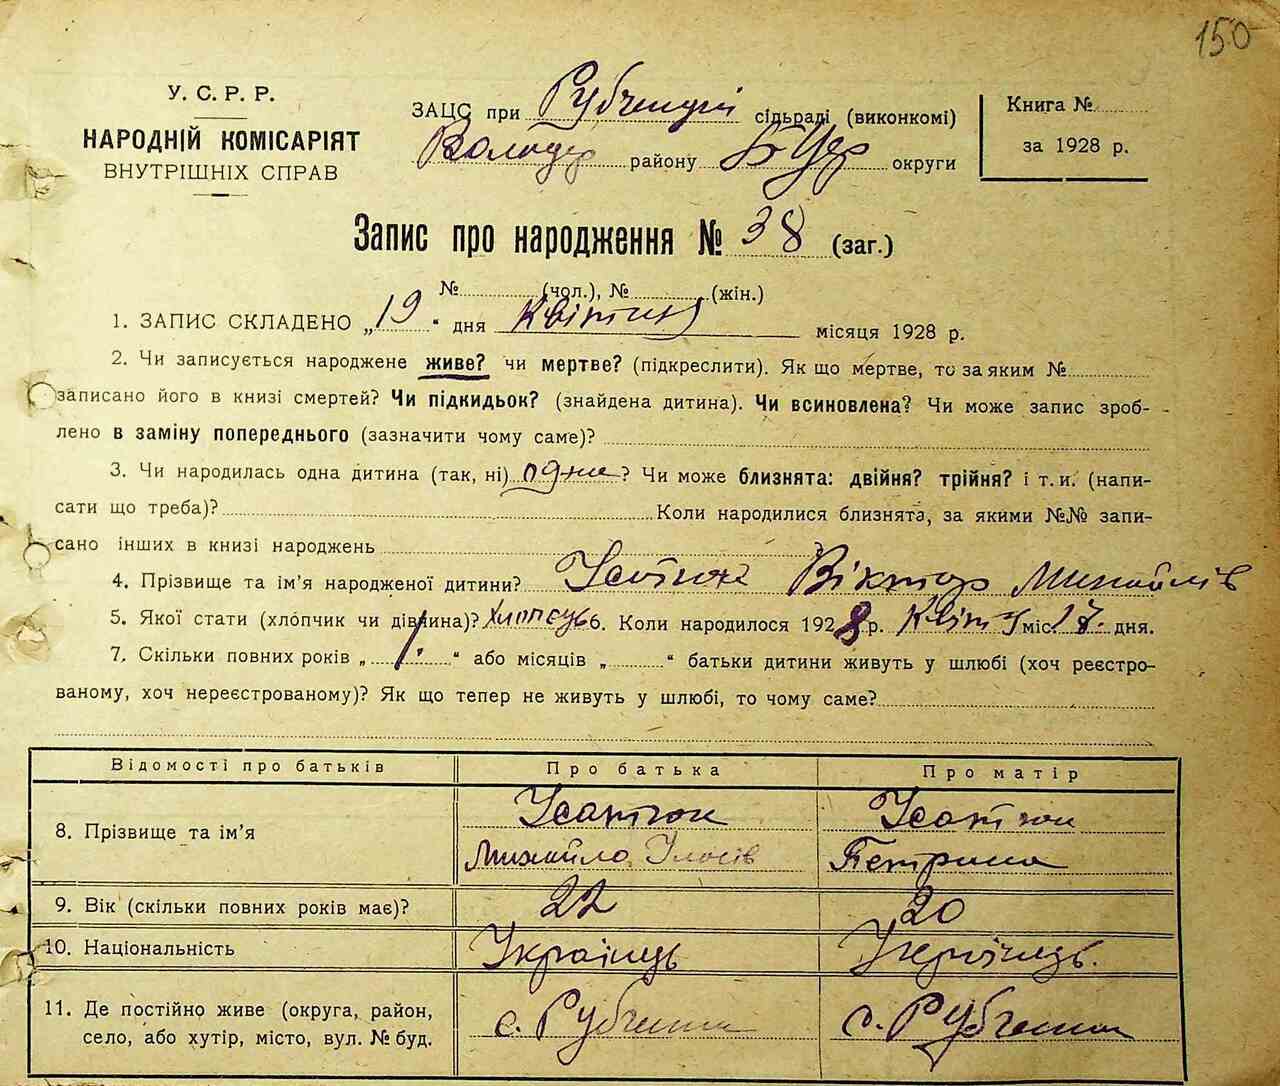 150
У. С. Р. Р.
НАРОДНІЙ КОМІСАРІЯТ
ВНУТРІШНІХ СПРАВ
ЗАЦС при Рубченській сільраді (виконкомі)
Володар району Б Цер округи
Книга №
за 1928 р.
Запис про народження № 38 (заг.)
№ (чол.), № (жін.)
1. ЗАПИС СКЛАДЕНО „19“ дня Квітня місяця 1928 р.
2. Чи записується народжене живе? чи мертве? (підкреслити). Як що мертве, то за яким №
записано його в книзі смертей? Чи підкидьок? (знайдена дитина). Чи всиновлена? Чи може запис зроб-
лено в заміну попереднього (зазначити чому саме)?
3. Чи народилась одна дитина (так, ні) одне? Чи може близнята: двійня? трійня? і т. и. (напи-
сати що треба)? Коли народилися близнята, за якими №№ запи-
сано інших в книзі народжень
4. Прізвище та ім’я народженої дитини? Усатюк Віктор Михайлів
5. Якої стати (хлопчик чи дівчина)? Хлопець 6. Коли народилося 1928 р. Квітня міс. 17. дня.
7. Скільки повних років „1.“ або місяців „ “ батьки дитини живуть у шлюбі (хоч реєстро-
ваному, хоч нереєстрованому)? Як що тепер не живуть у шлюбі, то чому саме?
Відомості про батьків Про батька Про матір
8. Прізвище та ім’я Усатюк Усатюк
Михайло
9. Вік (скільки повних років має)? 22 20
10. Національність Українець Українець.
11. Де постійно живе (округа, район, с. Рубченки с. Рубченки
село, або хутір, місто, вул. № буд.